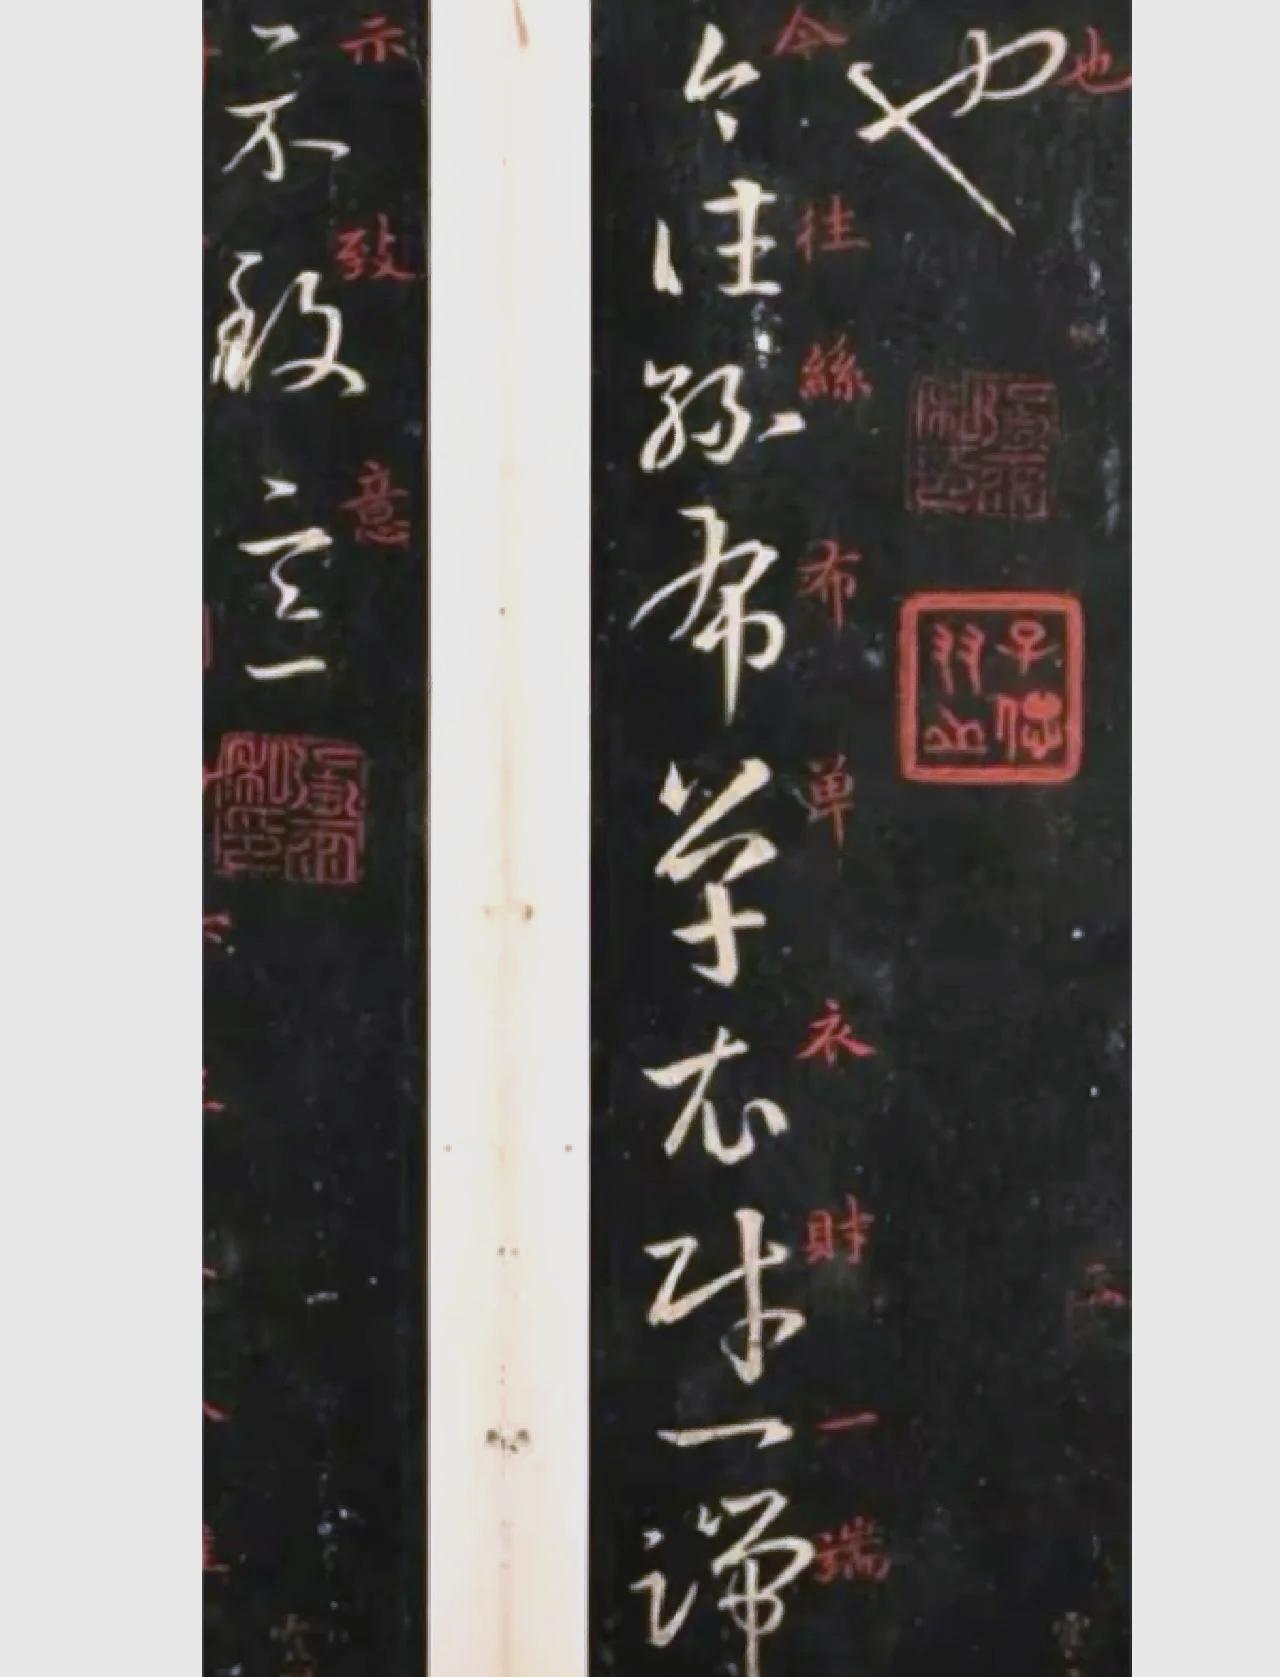 也
也
今往絲布单衣財一端
今往絲布單衣財一端
示致意
示致意